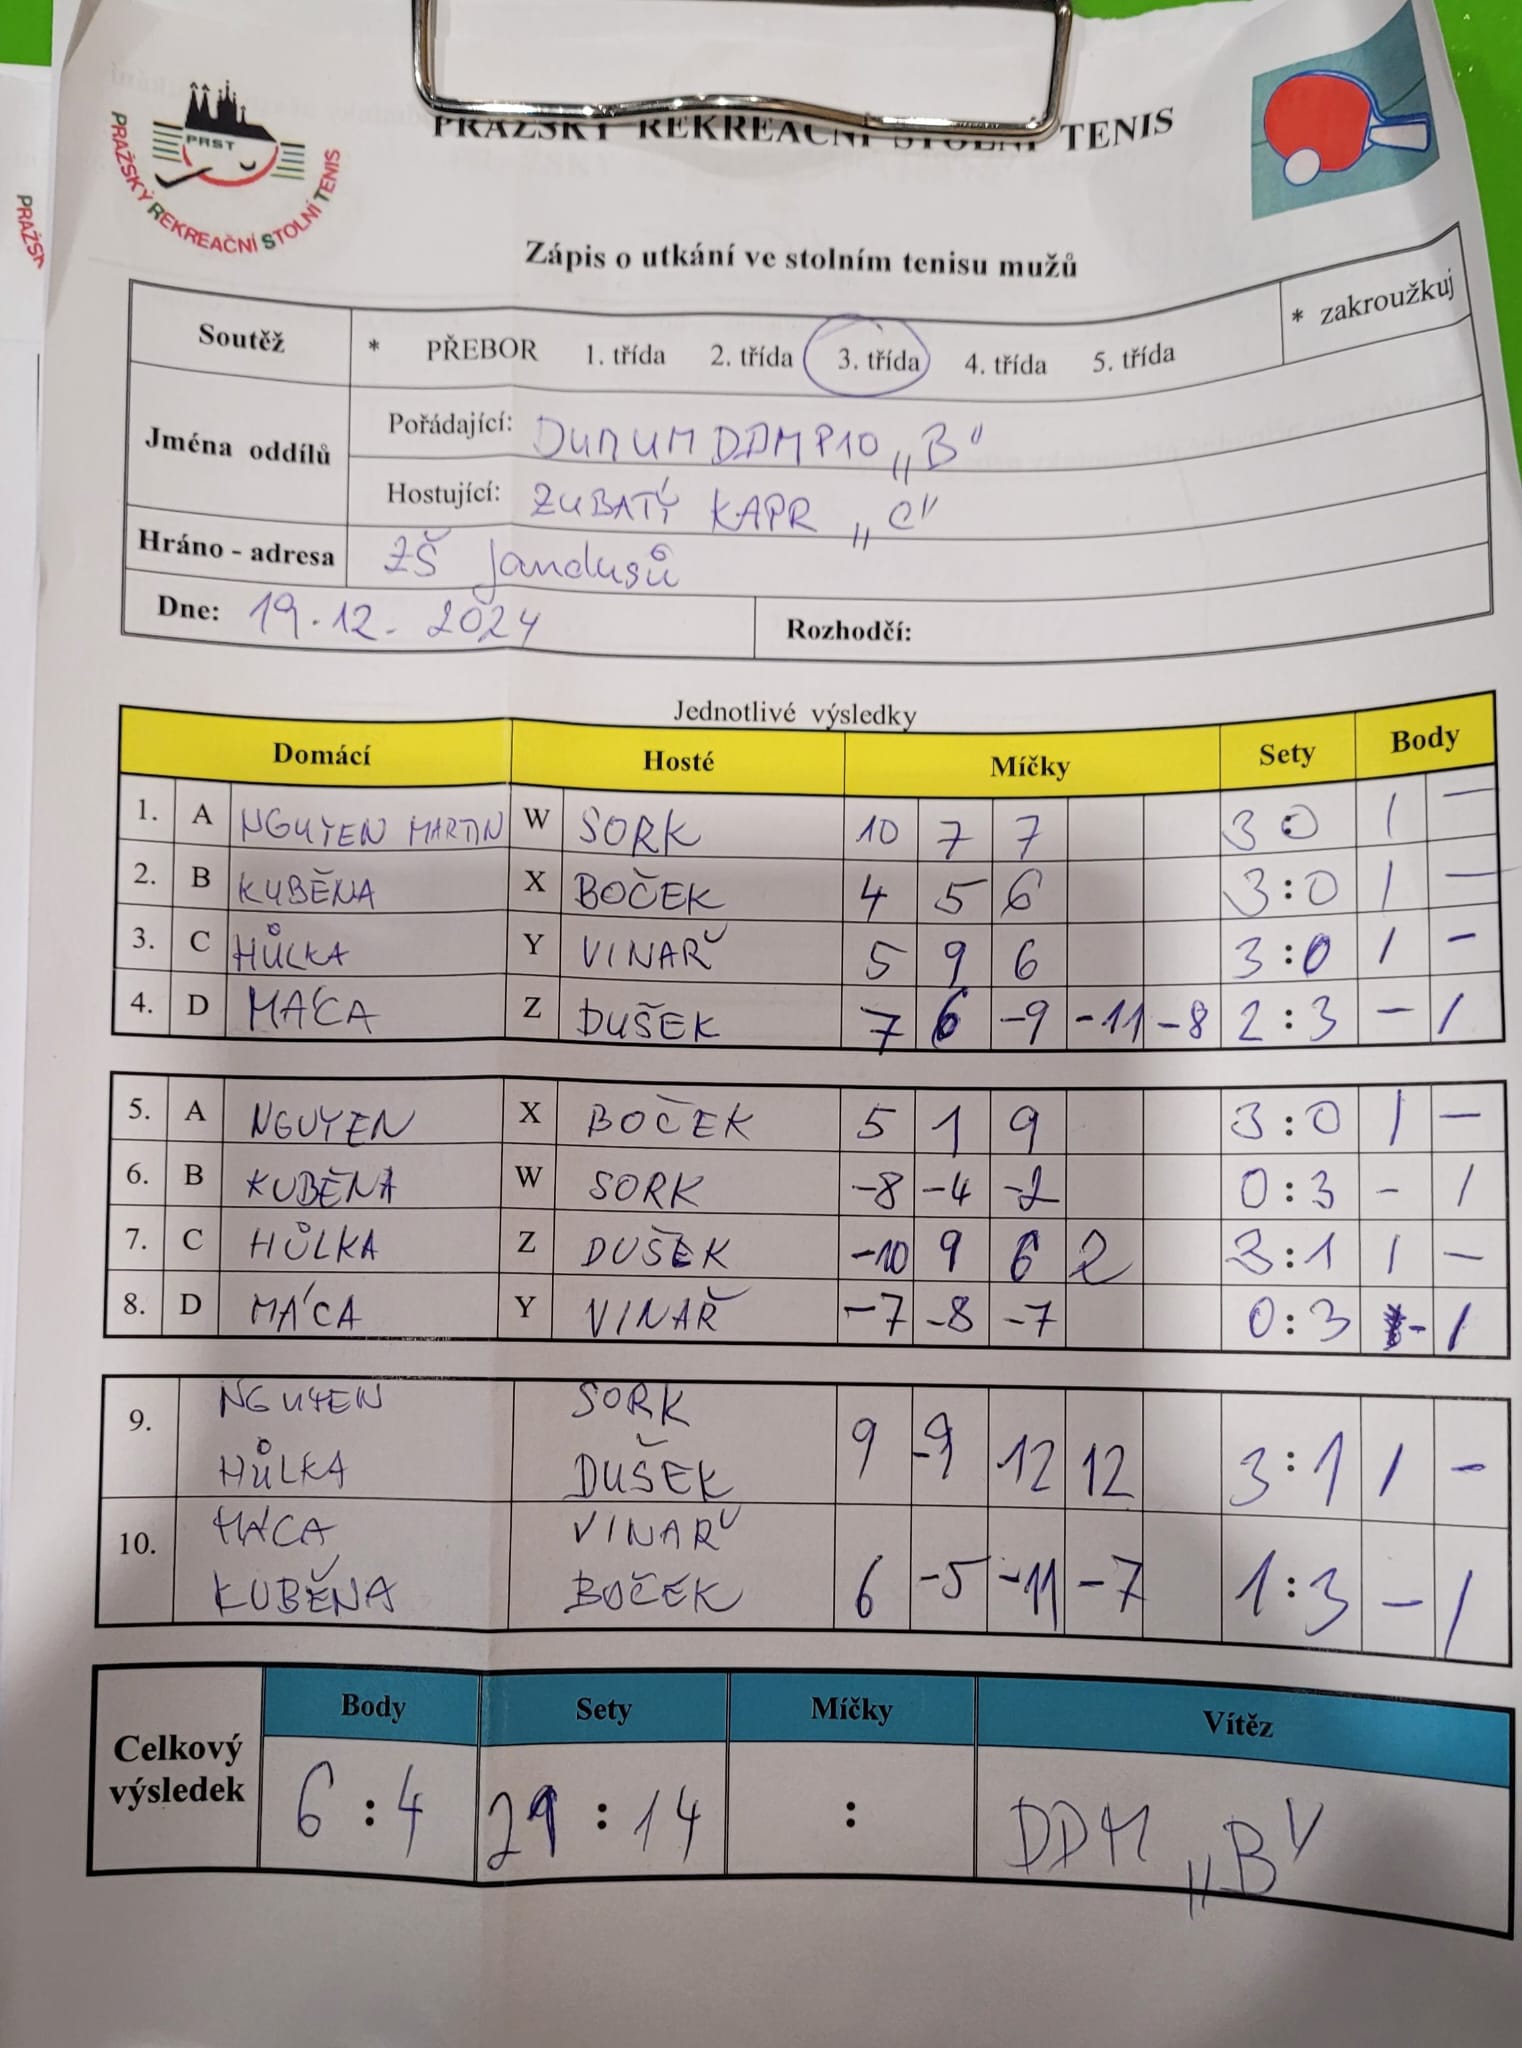 PRAŽSKÝ REKREAČNÍ STOLNÍ TENIS
PRST
PRAŽSKÝ REKREAČNÍ STOLNÍ TENIS
PRAŽSK
Zápis o utkání ve stolním tenisu mužů
Soutěž * PŘEBOR 1. třída 2. třída 3. třída 4. třída 5. třída * zakroužkuj
Jména oddílů
Pořádající: DUNUM DDM P10 „B"
Hostující: ZUBATÝ KAPR „C"
Hráno - adresa ZŠ Jandusů
Dne: 19.12. 2024 Rozhodčí:
Jednotlivé výsledky
Domácí Hosté Míčky Sety Body
1. A NGUYEN MARTIN W SORK 10 7 7 3:0 1 -
2. B KUBĚNA X BOČEK 4 5 6 3:0 1 -
3. C HŮLKA Y VINAŘ 5 9 6 3:0 1 -
4. D MÁCA Z DUŠEK 7 6 -9 -11 -8 2:3 - 1
5. A NGUYEN X BOČEK 5 1 9 3:0 1 -
6. B KUBĚNA W SORK -8 -4 -2 0:3 - 1
7. C HŮLKA Z DUŠEK -10 9 6 2 3:1 1 -
8. D MÁCA Y VINAŘ -7 -8 -7 0:3 - 1
9. NGUYEN SORK
HŮLKA DUŠEK 9 -9 12 12 3:1 1 -
10. MÁCA VINAŘ
KUBĚNA BOČEK 6 -5 -11 -7 1:3 - 1
Celkový výsledek
Body Sety Míčky Vítěz
6:4 21:14 : DDM „B"